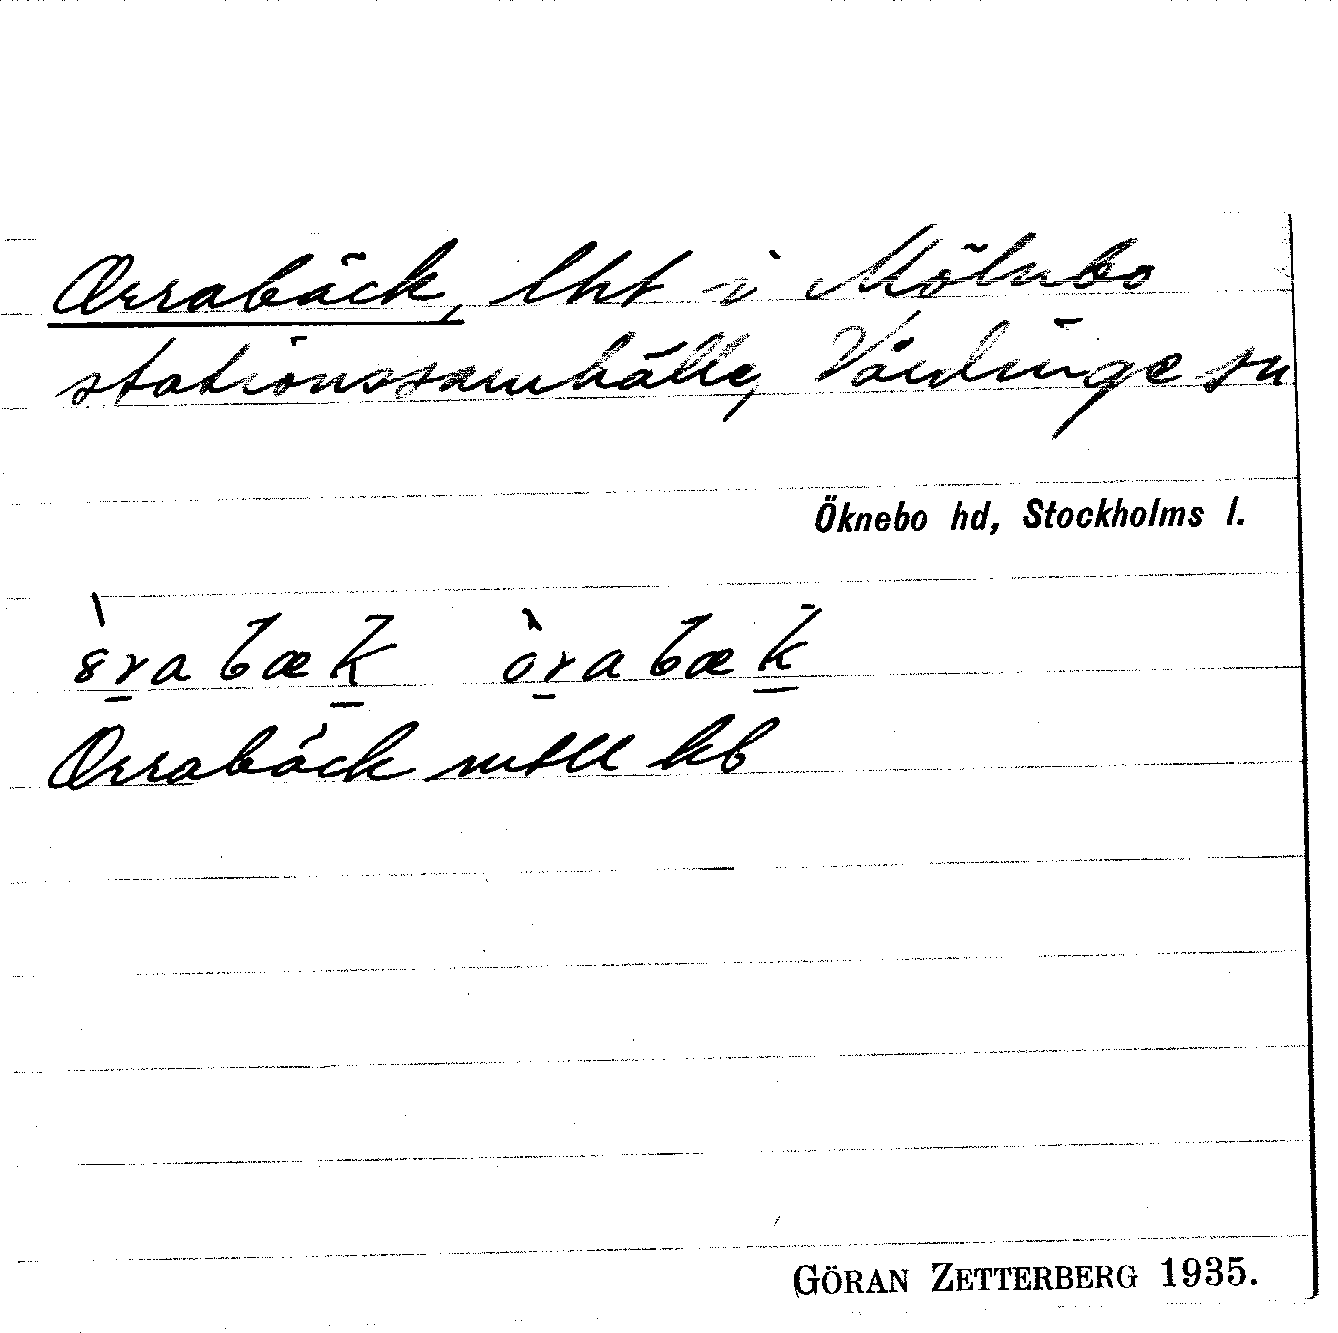 Orrabäck, lht i Mölnbo
stationssamhälle, Vårdinge sn
Öknebo hd, Stockholms l.
òrabæk òrabæk
Orrabäck mtll kb
GÖRAN ZETTERBERG 1935.